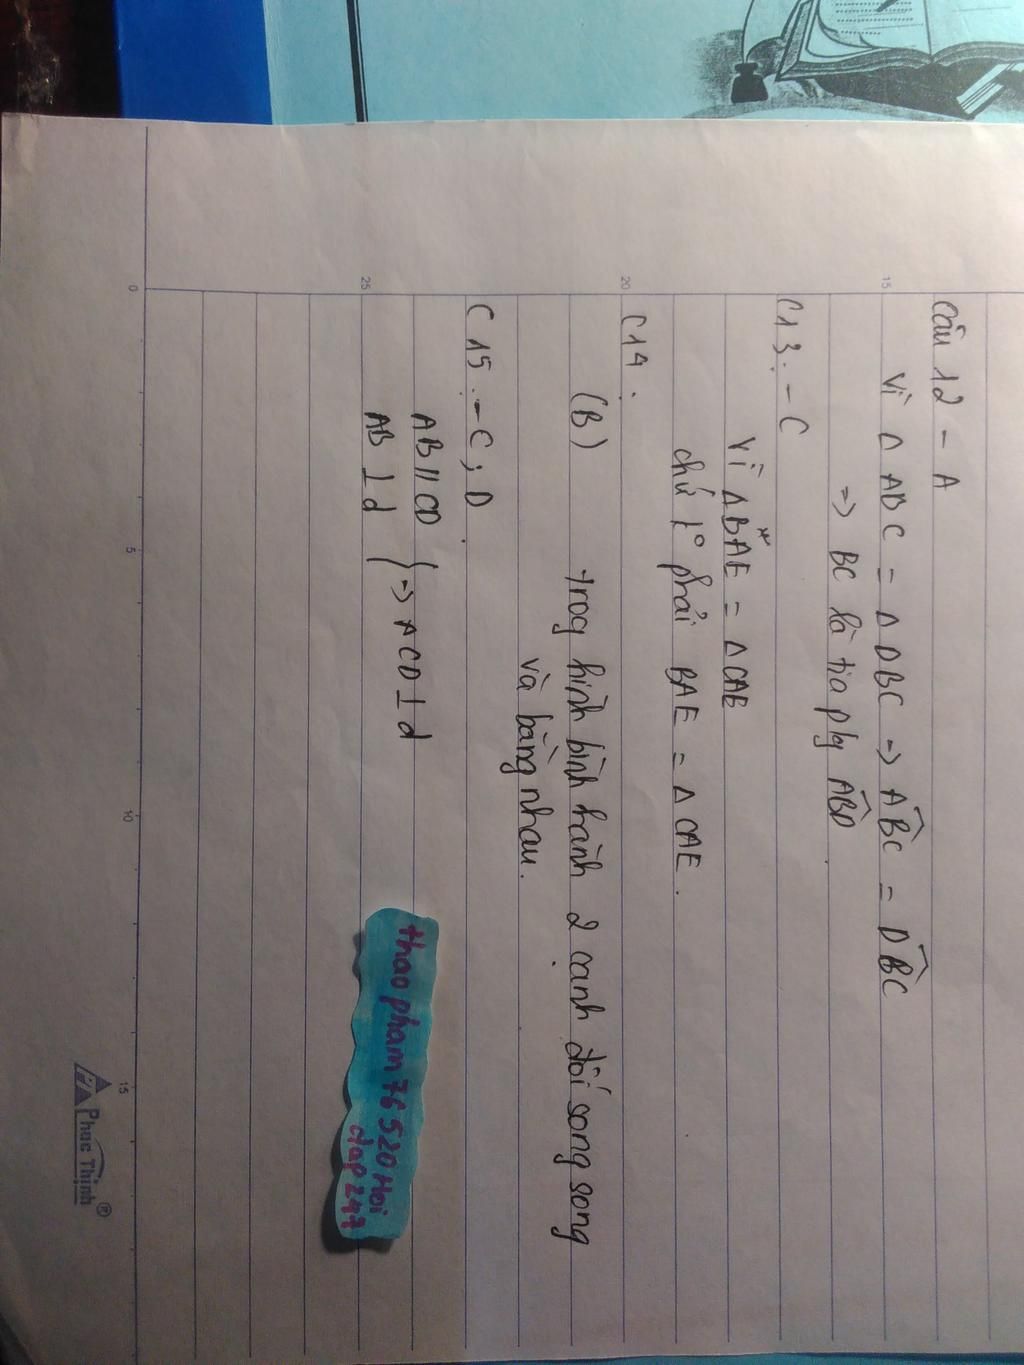 Câu 12 - A
Vì Δ ABC = Δ DBC => ABC = DBC
=> BC là tia plg ABD
C13. - C
Vì Δ BAE = Δ CAE
chứ k° phải BAE = Δ CAE.
C14.
(B) trog hình bình hành 2 cạnh đối song song
và bằng nhau.
C15. - C; D
AB // CD } => CD ⊥ d
AB ⊥ d
thao pham 76520 Hoi
dap 247
Phuc Thinh®
0
5
10
15
15
20
25